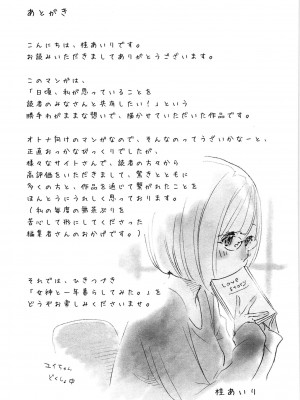 あとがき
こんにちは、桂あいりです。
お読みいただきましてありがとうございます。
このマンガは、
「日頃、私が思っていることを
読者のみなさんと共有したい!」という
勝手わがままな想いで、描かせていただいた作品です。
オトナ向けのマンガなので、そんなのってうざいかなーと、
正直おっかなびっくりでしたが、
様々なサイトさんで、読者の方々から
高評価をいただきまして、驚きとともに
多くの方と、作品を通じて繋がれたことを
ほんとうにうれしく思っております。
(私の毎度の無茶ぶりを
苦心して形にしてくださった
編集者さんのおかげです。)
それでは、ひきつづき
「女神と一年暮らしてみた。」を
どうぞお楽しみくださいませ。
LOVE STORY
ユイちゃん
どくしょ中
桂あいり